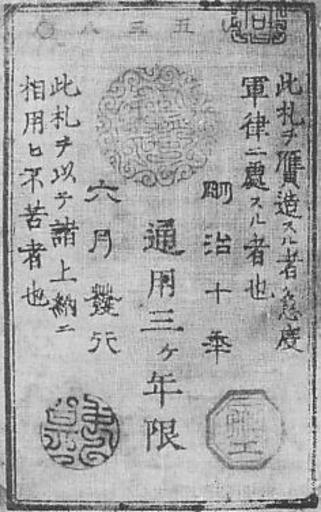 五三八〇
此札ヲ贋造スル者ハ急度
軍律ニ處スル者也
明治十年
通用三ヶ年限
六月發行
此札ヲ以テ諸上納ニ
相用ヒ不苦者也